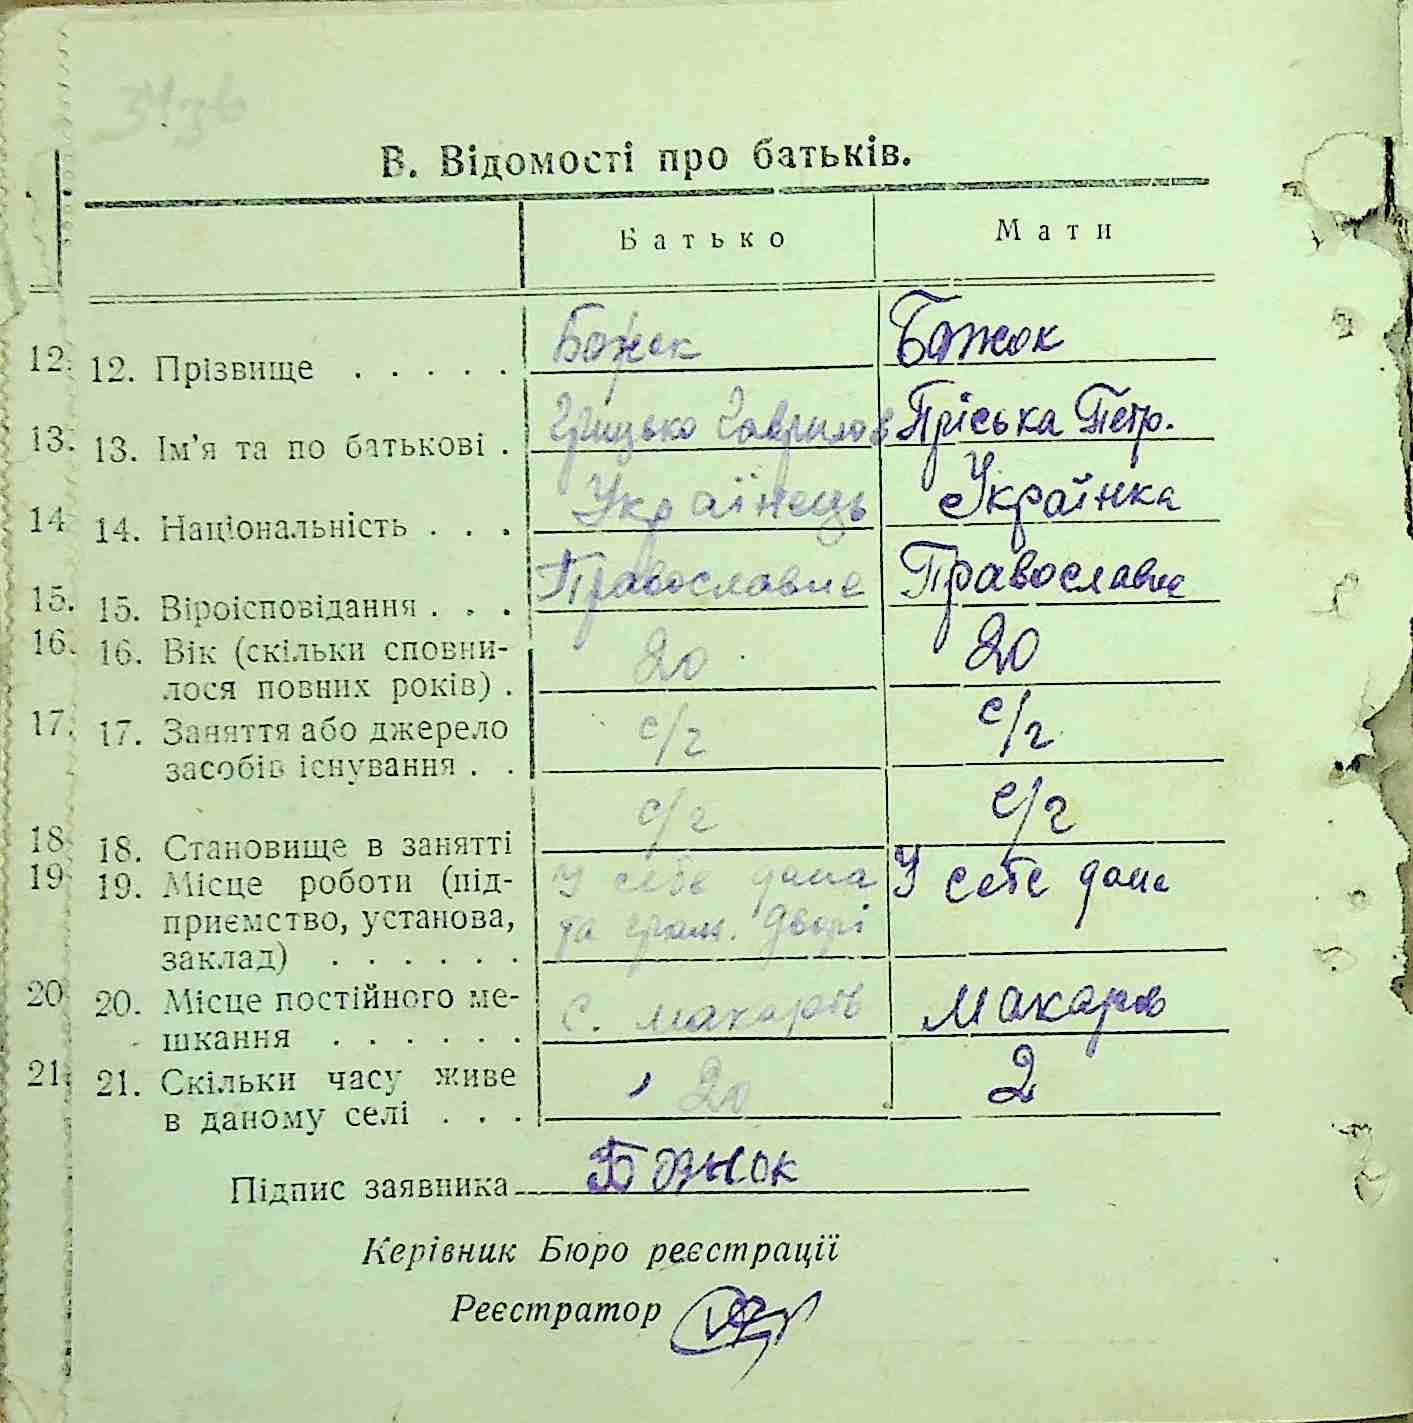 В. Відомості про батьків.
Батько Мати
12. 12. Прізвище . . . . . Божок Божок
13. 13. Ім'я та по батькові . Грицько Гаврилов Пріська Петр.
14 14. Національність . . . Українець Українка
15. 15. Віроісповідання . . . Православне Православне
16. 16. Вік (скільки сповни-
лося повних років) . 20 20
17. 17. Заняття або джерело с/г с/г
засобів існування . .
18 18. Становище в занятті с/г с/г
19 19. Місце роботи (під- У себе дома У себе дома
приємство, установа, та гром. дворі
заклад) . . . . . .
20 20. Місце постійного ме- с. Макарів Макарів
шкання . . . . . .
21. 21. Скільки часу живе 20 2
в даному селі . . .
Підпис заявника Божок
Керівник Бюро реєстрації
Реєстратор